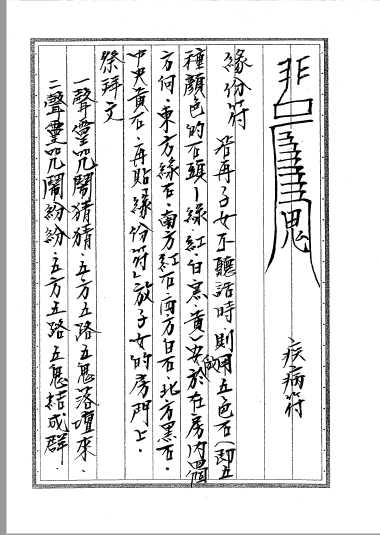 疾病符
緣份符 若再子女不聽話時則用五色石(即五
種顏色的石頭—綠.紅.白.黑.黃)安放於在房內四個
方何.東方緣石.南方紅石.西方白石.北方黑石.
中央黃石.再貼緣份符」放子女的房門上.
祭拜文
一聲靈咒鬧猜猜.五方五路五鬼落壇來.
二聲靈咒鬧紛紛.五方五路五鬼結成群.